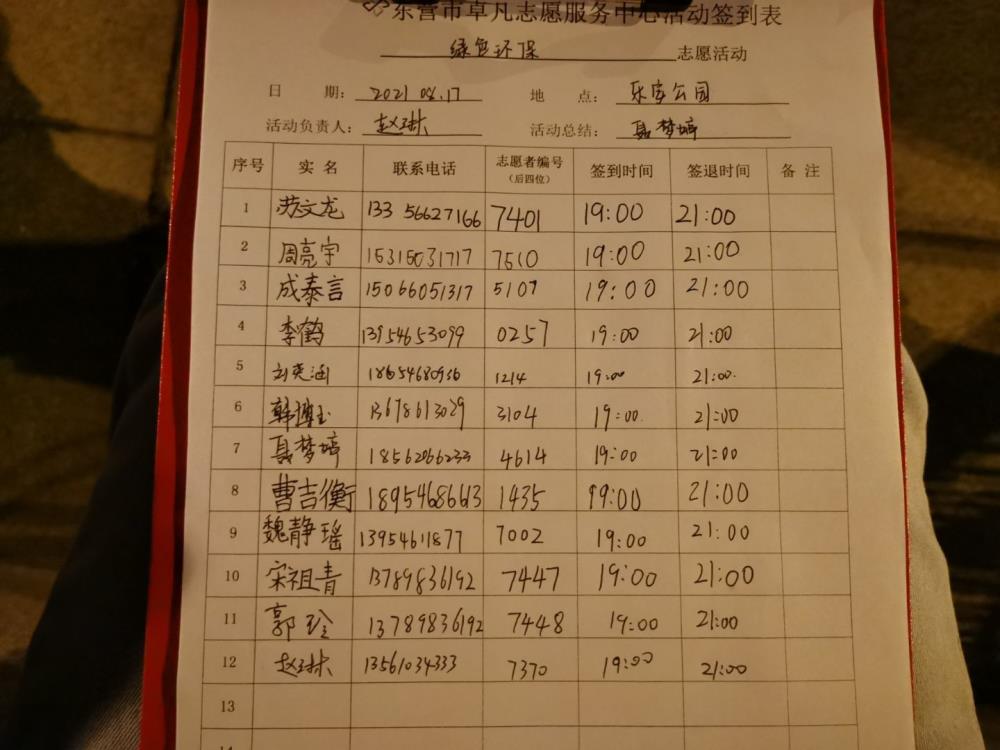 东营市卓凡志愿服务中心活动签到表
绿色环保 志愿活动
日 期: 2021 08.17 地 点: 乐安公园
活动负责人: 赵琳 活动总结: 聂梦婷
序号 实 名 联系电话 志愿者编号 (后四位) 签到时间 签退时间 备 注
1 苏文龙 133 56627166 7401 19:00 21:00
2 周亮宇 15315031717 7510 19:00 21:00
3 成泰言 15066051317 5107 19:00 21:00
4 李鹤 13954653099 0257 19:00 21:00
5 刘奕涵 18654680936 1214 19:00 21:00.
6 韩博玉 13678613029 3104 19:00. 21:00
7 聂梦婷 18562066233 4614 19:00 21:00
8 曹吉衡 18954686613 1435 19:00 21:00
9 魏静瑶 13954611877 7002 19:00 21:00
10 宋祖青 13789836192 7447 19:00 21:00
11 郭玲 13789836192 7448 19:00 21:00
12 赵琳 13561034333 7370 19:00 21:00
13